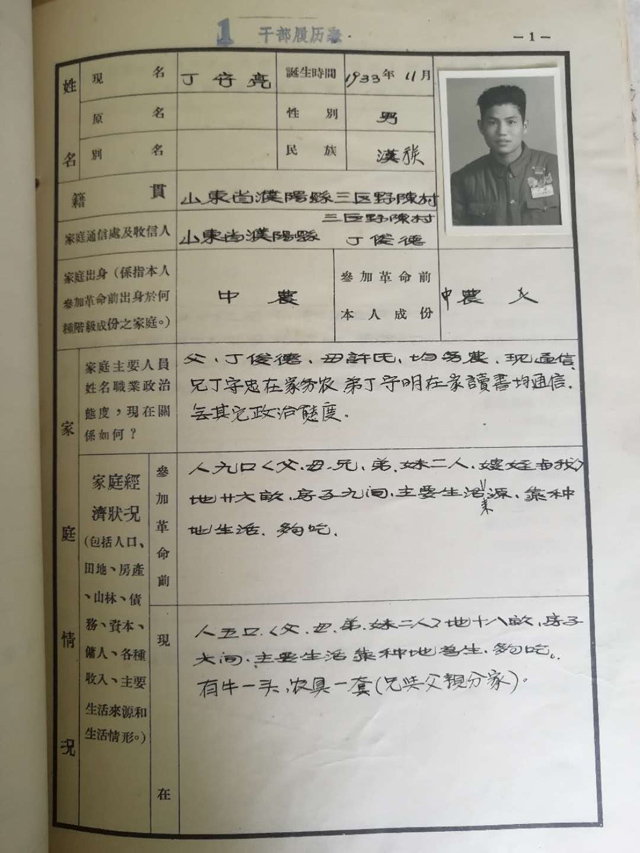 1 干部履历表
—1—
姓名
現名
丁守亮
誕生時間
1933年11月
原名
性別
男
別名
民族
漢族
籍貫
山東省濮陽縣三区野陳村
家庭通信處及收信人
山東省濮陽縣三区野陳村
丁俊德
家庭出身（係指本人
參加革命前出身於何
種階級成份之家庭。）
中農
參加革命前
本人成份
中農
家庭情况
家庭主要人員
姓名職業政治
態度，現在關
係如何？
父，丁俊德，母許氏，均务農，现通信
兄丁守忠在家务农 弟丁守明在家讀書均通信，
无其它政治態度．
家庭經
濟狀况
(包括人口、
田地、房產
、山林、債
務、資本、
傭人、各種
收入、主要
生活來源和
生活情形。)
參加革命前
人九口〈父，母，兄，弟，妹二人，嫂姪与我〉
地廿六畝，房子九间，主要生活来源，靠种
地生活．夠吃．
現在
人五口．〈父，母，弟，妹二人〉地十八畝，房子
六间，主要生活靠种地為生，夠吃。
有牛一头，农具一套(兄與父親分家)．